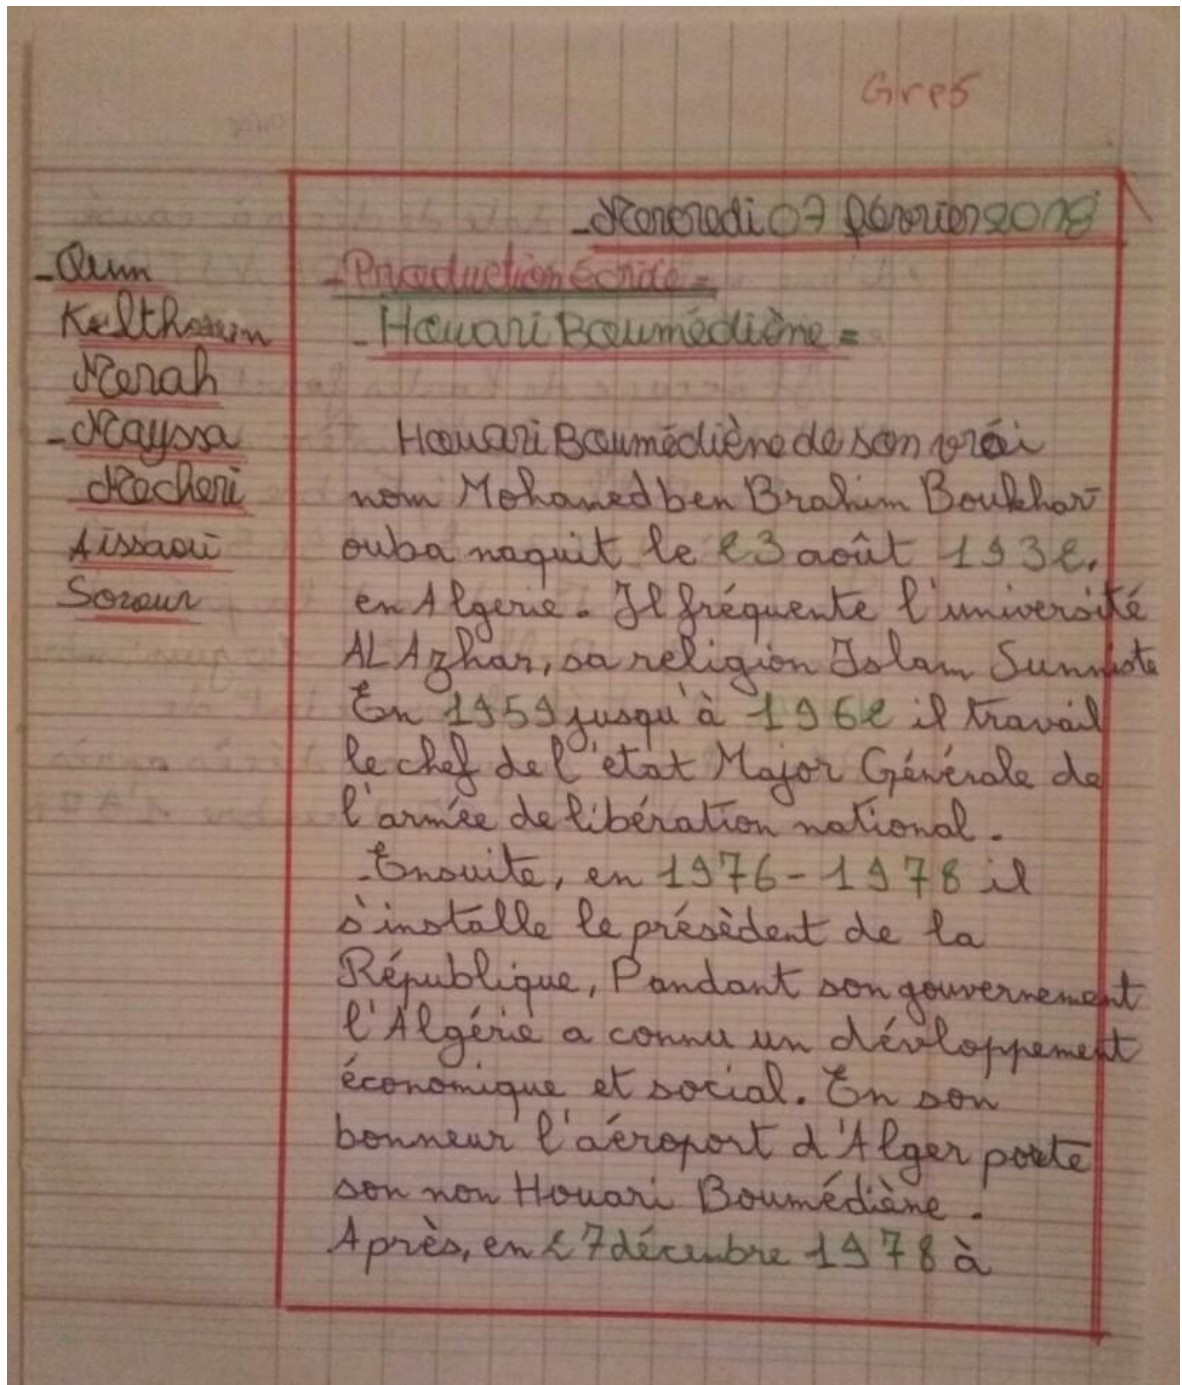 Gre5
-Mercredi 07 février 2018
-Production écrite=
-Houari Boumédiène=
-Oum
Kelthoum
Merah
-Mayssa
Macheri
Aissaoui
Sorour
Houari Boumédiène de son vrai
nom Mohamed ben Brahim Boukhar
ouba naquit le 23 août 1932.
en Algerie. Il fréquente l'université
AL Azhar, sa religion Islam Sunniste
En 1959 jusqu'à 1962 il travail
le chef de l'état Major Générale de
l'armée de libération national.
-Ensuite, en 1976-1978 il
s'installe le présèdent de la
République, Pandant son gouvernement
l'Algérie a connu un dévloppement
économique et social. En son
bonneur l'aéroport d'Alger porte
son non Houari Boumédiène.
Après, en 27 décembre 1978 à